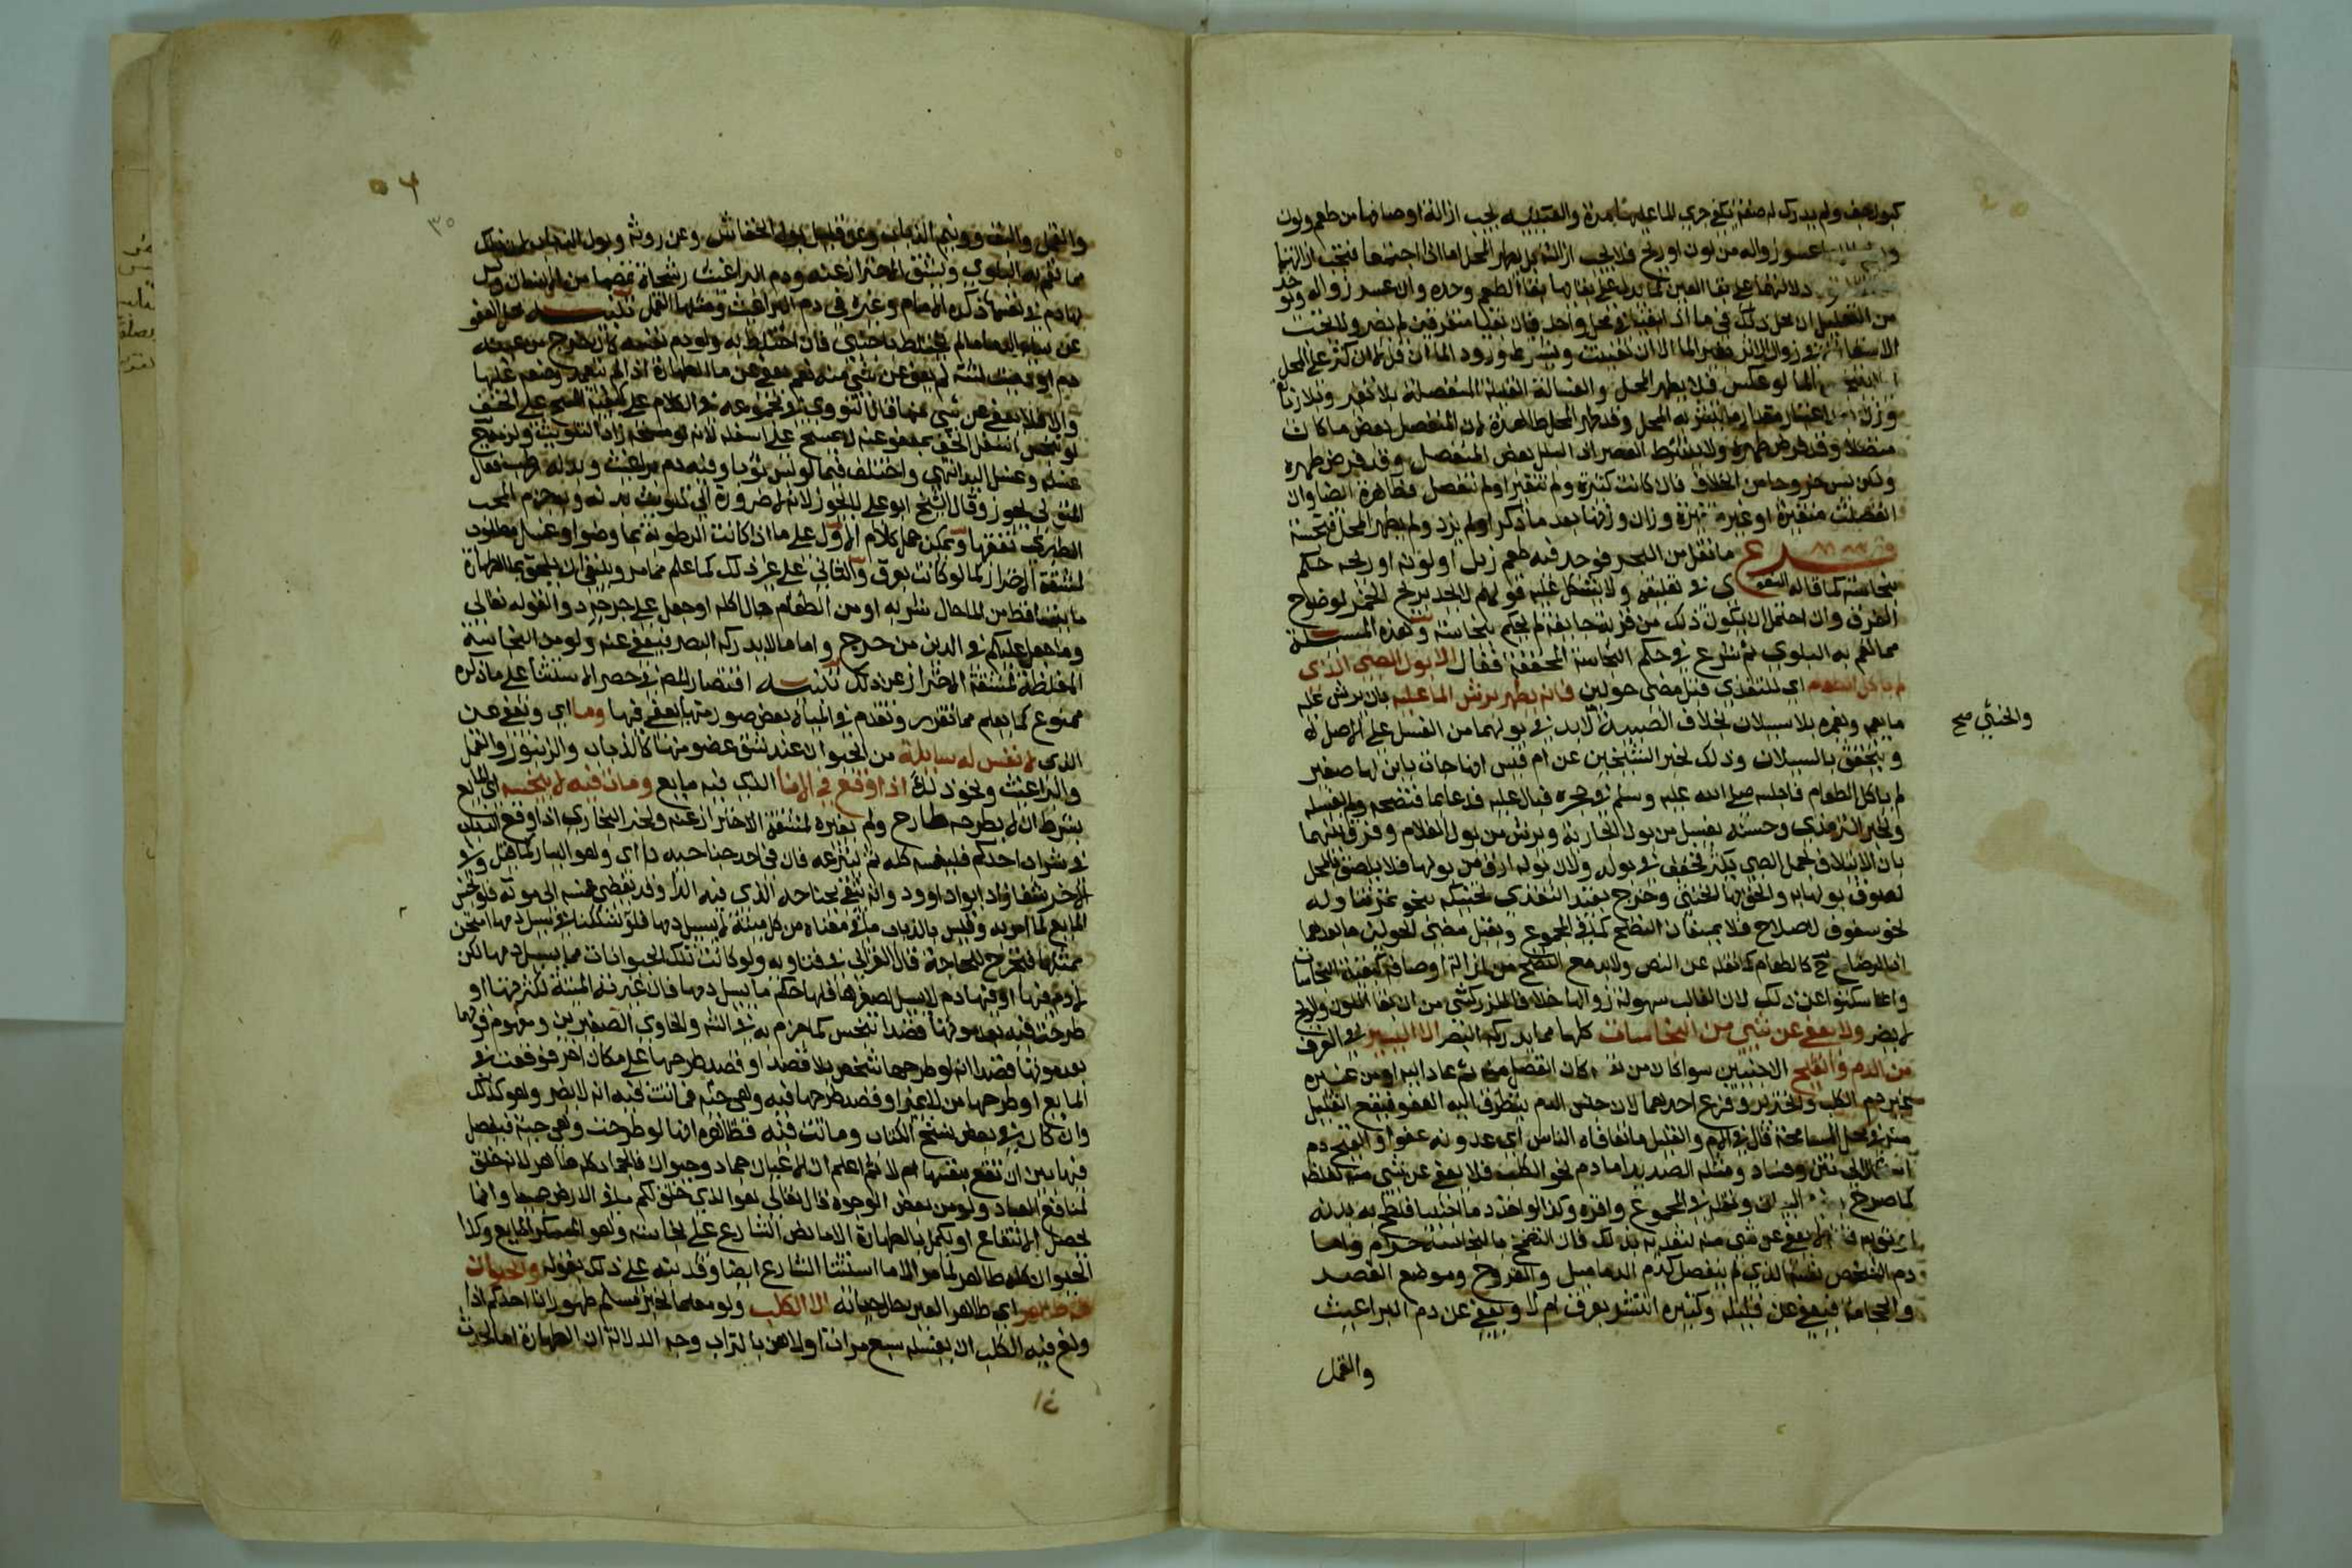 كبول جف ولم يدرك له صفة يكفي جري الماء عليها مرة والعينية يجب ازالة اوصافها من طعم ولون
عسر زواله من لون او ريح فلا تجب ازالته بل يطهر المحل اما اذا اجتمعا فتجب ازالتهما
دلالتهما على بقا العين كما يدل على بقائها بقا الطعم وحده وان عسر زواله ويوخذ
من التعليل ان محل ذلك فيما اذا بقيا في محل واحد فان بقيا متفرقين لم يضر ولا تجب
الاستعانة في زوال الاثر بغير الما الا ان تعينت ويشترط ورود الما ان قل لا ان كثر على المحل
الما لو عكس فلا يطهر المحل والغسالة القليلة المنفصلة بلا تغير وبلا زيادة
وزن بعد اعتبار مقدار ما يتشربه المحل وقد طهر المحل طاهرة لان المنفصل بعض ما كان
متصلا وقد فرض طهره ولا يشترط العصر اذ البلل بعض المنفصل وقد فرض طهره
ولكن يسن خروجا من الخلاف فان كانت كثيرة ولم تتغير او لم تنفصل فطاهرة ايضا وان
انفصلت متغيرة او غير متغيرة وزاد وزنها بعد ما ذكر او لم يزد ولم يطهر المحل فنجسة
فرع ما نقل من البحر فوجد فيه طعم زبل او لونه او ريحه حكم
بنجاسته كما قاله البغوي في تعليقه ولا يشكل عليه قولهم لا يحد بريح الخمر لوضوح
الفرق وان احتمل ان يكون ذلك من قربه جايفة لم يحكم بنجاسته وهذه المسئلة
مما تعم به البلوى ثم شرع في حكم النجاسة المخففة فقال الا بول الصبي الذي
لم ياكل الطعام اي للتغذي قبل مضي حولين فانه يطهر برش الما عليه بان يرش عليه
ما يعمه ويغمره بلا سيلان بخلاف الصبية لا بد في بولهما من الغسل على الاصل له
والخنثى صح
ويتحقق بالسيلان وذلك لخبر الشيخين عن ام قيس انها جات بابن لها صغير
لم ياكل الطعام فاجلسه صلى الله عليه وسلم في حجره فبال عليه فدعا بما فنضحه ولم يغسله
ولخبر الترمذي وحسنه يغسل من بول الجارية ويرش من بول الغلام وفرق بينهما
بان الائتلاف بحمل الصبي يكثر فخفف في بوله ولان بوله ارق من بولها فلا يلصق بالمحل
لصوق بولها به والحق بها الخنثى وخرج بقيد التغذي تحنيكه بنحو تمر وتناوله
نحو سفوف لاصلاح فلا يمنعان النضح كما في المجموع وبقبل مضي الحولين ما بعدهما
اذ الرضاع ح كالطعام كما نقله عن النص ولا بد مع النضح من ازالة اوصافه كبقية النجاسات
وانما سكتوا عن ذلك لان الغالب سهولة زوالها خلافا للزركشي من ان بقا اللون والريح
لا يضر ولا يعفى عن شي من النجاسات كلها مما يدركه البصر الا اليسير في العرف
من الدم والقيح الاجنبيين سوا كان من نفسه كان انفصل منه ثم عاد اليه او من غيره
غير دم الكلب والخنزير وفرع احدهما لان جنس الدم يتطرق اليه العفو فيقع القليل
منه في محل المسامحة قال في الام والقليل ما تعافاه الناس اي عدوه عفوا والقيح دم
الى نتن وفساد ومثله الصديد اما دم نحو الكلب فلا يعفى عن شي منه لغلظه
كما صرح به في البيان ونقله في المجموع واقره وكذا لو اخذ دما اجنبيا فلطخ به بدنه
او ثوبه فانه لا يعفى عن شي منه لتعديه بذلك فان التضمخ بالنجاسة حرام واما
دم الشخص نفسه الذي لم ينفصل كدم الدماميل والقروح وموضع الفصد
والحجامة فيعفى عن قليله وكثيره انتشر بعرق ام لا ويعفى عن دم البراغيث
والقمل
٣٠
والقمل والبق وونيم الذباب وعن قليل بول الخفاش وعن روثه وبول الذباب لان ذلك
مما تعم به البلوى ويشق الاحتراز عنه ودم البراغيث رشحات تمصها من الانسان وليس
لها دم في نفسها ذكره الامام وغيره في دم البراغيث ومثلها القمل تنبيه محل العفو
عن ساير الدما ما لم يختلط باجنبي فان اختلط به ولو دم نفسه كان خرج من عينه
دم او دميت لثته لم يعف عن شي منه نعم يعفى عن ما الطهارة اذا لم يتعمد وضعه عليها
والا فلا يعفى عن شي منها قال النووي في مجموعه في الكلام على كيفية المسح على الخف
لو تنجس اسفل الخف بمعفو عنه لا يمسح على اسفله لانه لو مسحه زاد التلويث ولزمه ح
غسله وغسل اليد انتهى واختلف فيما لو لبس ثوبا وفيه دم براغيث وبدنه رطب فقال
المتولي يجوز وقال الشيخ ابو علي لا يجوز لانه لا ضرورة الى تلويث بدنه وبه جزم المحب
الطبري تفقها ويمكن حمل كلام الاول على ما اذا كانت الرطوبة بما وضوء او غسل مطلوب
لمشقة الاحتراز كما لو كانت بعرق والثاني على غير ذلك كما علم مما مر وينبغي ان يلحق بما الطهارة
ما يتساقط من الما حال شربه او من الطعام حال اكله او جعل على جرحه دوا لقوله تعالى
وما جعل عليكم في الدين من حرج واما ما لا يدركه البصر فيعفى عنه ولو من النجاسة
المغلظة لمشقة الاحتراز عن ذلك تنبيه اقتصار المص في حصر الاستثنا على ما ذكره
ممنوع كما يعلم مما تقدم وتقدم في المياه بعض صور منها يعفى فيها وما اي ويعفى عن
الذي لا نفس له سايلة من الحيوان عند شق عضو منها كالذباب والزنبور والقمل
والبراغيث ونحو ذلك اذا وقع في الانا الذي فيه مايع ومات فيه لا ينجسه اي المايع
بشرط ان لا يطرحه طارح ولم يغيره لمشقة الاحتراز عنه ولخبر البخاري اذا وقع الذباب
في شراب احدكم فليغمسه كله ثم لينزعه فان في احد جناحيه دا اي وهو اليسار كما قيل وفي
الاخر شفا زاد ابو داوود وانه يتقي بجناحه الذي فيه الدا وقد يفضي غمسه الى موته فلو نجس
المايع لما امر به وقيس بالذباب ما في معناه من كل ميتة لا يسيل دمها فلو شككنا في سيل دمها امتحن
بمثلها فيجرح للحاجة قاله الغزالي في فتاويه ولو كانت تلك الحيوانات مما يسيل دمها لكن
لا دم فيها او فيها دم لا يسيل لصغرها فلها حكم ما يسيل دمها فان غيرته الميتة لكثرتها او
طرحت فيه بعد موتها قصدا تنجس كما جزم به في الشرح والحاوي الصغيرين ومفهوم قولهما
بعد موتها قصدا انه لو طرحها شخص بلا قصد او قصد طرحها على مكان اخر فوقعت في
المايع او طرحها من لا يميز او قصد طرحها فيه وهي حية فماتت فيه انه لا يضر وهو كذلك
وان كان في بعض نسخ الكتاب وماتت فيه فظاهره انها لو طرحت وهي حية فيفصل
فيها بين ان تقع بنفسها ام لا ثم اعلم ان الاعيان جماد وحيوان فالجماد كله طاهر لانه خلق
لمنافع العباد ولو من بعض الوجوه قال تعالى هو الذي خلق لكم ما في الارض جميعا وانما
يحصل الانتفاع او يكمل بالطهارة الا ما نص الشارع على نجاسته وهو المسكر المايع وكذا
الحيوان كله طاهر لما مر الا ما استثنا الشارع ايضا وقد نبه على ذلك بقوله والحيوان
كله طاهر اي طاهر العين حال حياته الا الكلب ولو معلما لخبر مسلم طهور انا احدكم اذا
ولغ فيه الكلب ان يغسله سبع مرات اولاهن بالتراب وجه الدلالة ان الطهارة اما لحدث